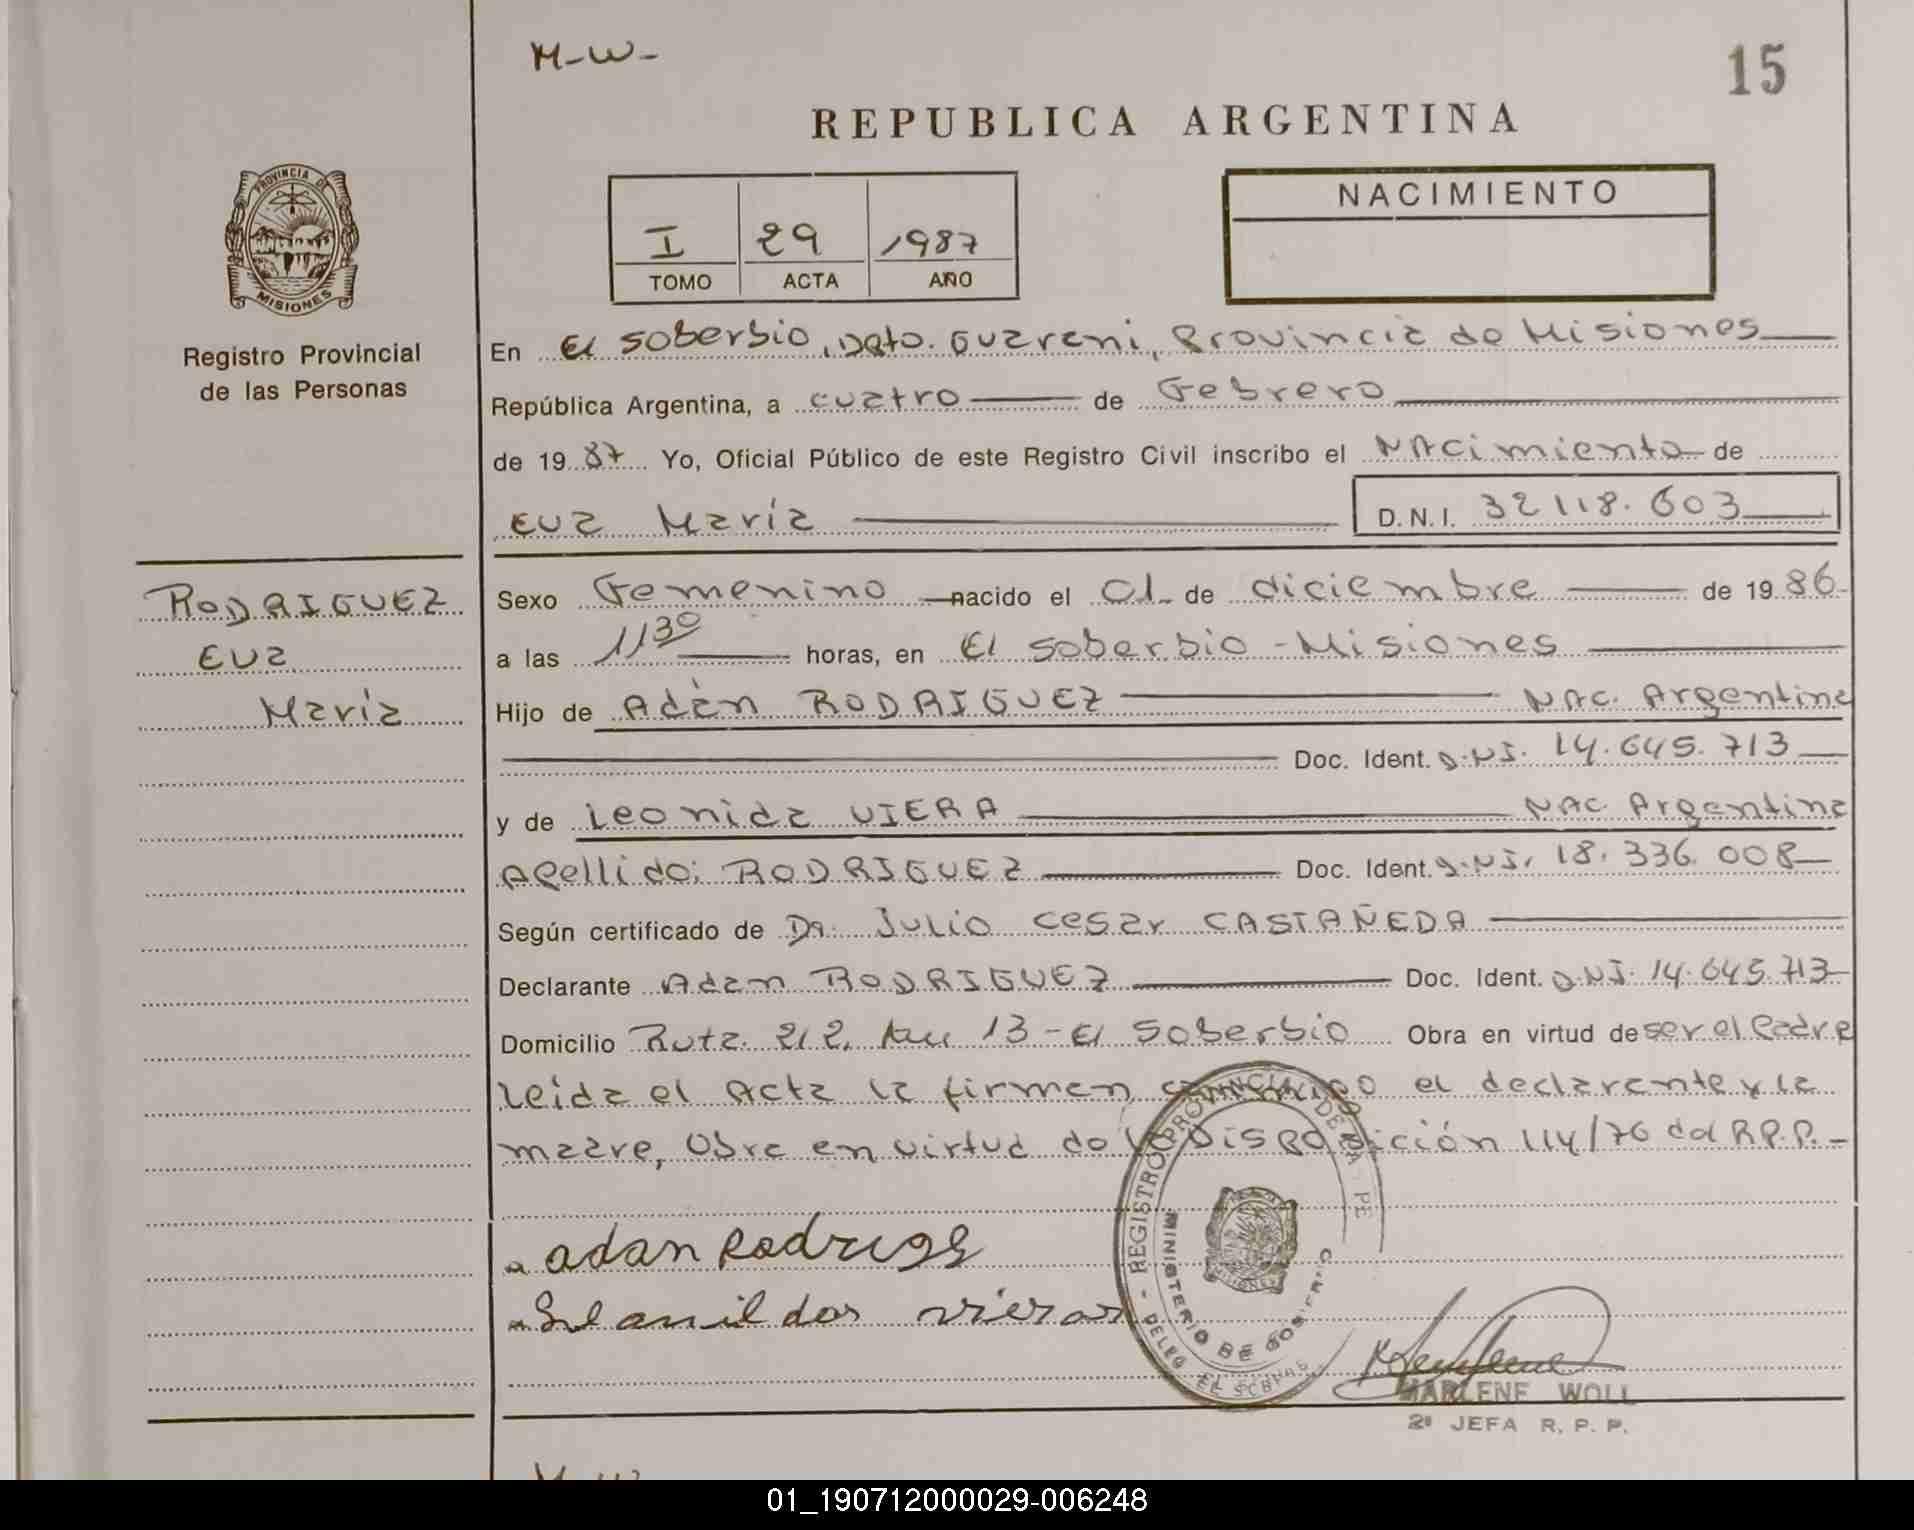 M-W-
15
REPUBLICA ARGENTINA
PROVINCIA DE
MISIONES
Registro Provincial
de las Personas
I 29 1987
TOMO ACTA AÑO
NACIMIENTO
En El Soberbio, Dpto. Guarani, Provincia de Misiones
República Argentina, a cuatro de Febrero
de 1987 Yo, Oficial Público de este Registro Civil inscribo el NAcimiento de
Eva María D.N.I. 32118.603
RODRIGUEZ
Eva
María
Sexo Femenino nacido el 01 de diciembre de 1986
a las 11³⁰ horas, en El Soberbio - Misiones
Hijo de Adán RODRIGUEZ NAC. Argentina
Doc. Ident. D.N.I. 14.645.713
y de Leonida VIERA NAC. Argentina
Apellido: RODRIGUEZ Doc. Ident. D.N.I. 18.336.008
Según certificado de Dr. Julio Cesar CASTAÑEDA
Declarante Adan RODRIGUEZ Doc. Ident. D.N.I. 14.645.713
Domicilio Ruta 212, km 13 - El Soberbio Obra en virtud de ser el Padre
Leida el Acta la firman conmigo el declarante y la
madre, Obra en virtud de la Disposición 114/76 del R.P.P.-
adan Rodrigs
vieras
REGISTRO PROVINCIAL DE LA PE
MINISTERIO DE GOBIERNO
DELEG EL SOBERB
MISIONES
MARLENE WOLL
2ª JEFA R. P. P.
M-W
01_190712000029-006248